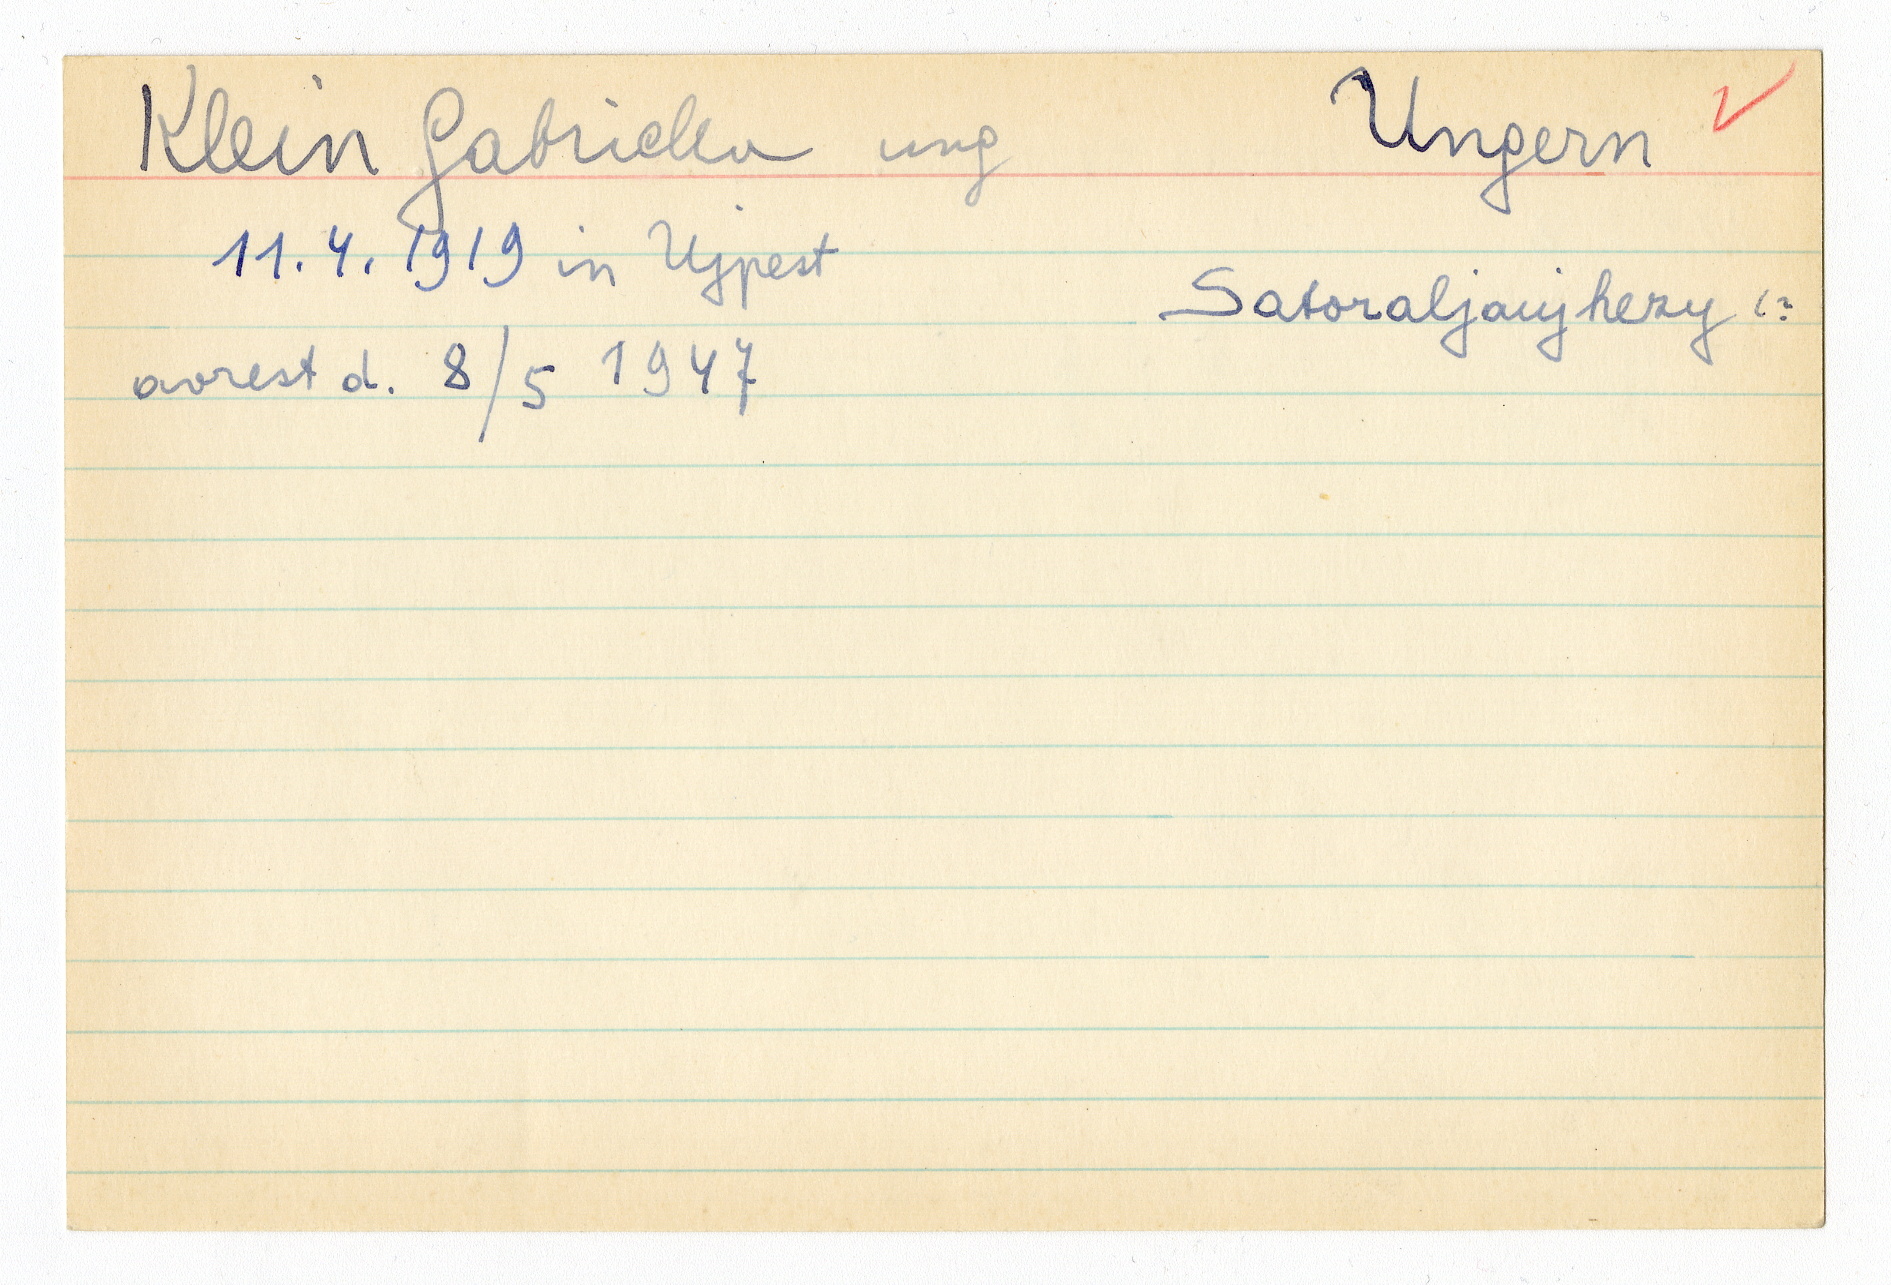 Klein Gabriella ung Ungern
11.4.1919 in Ujpest
Satoraljaujhezy (?
avrest d. 8/5 1947